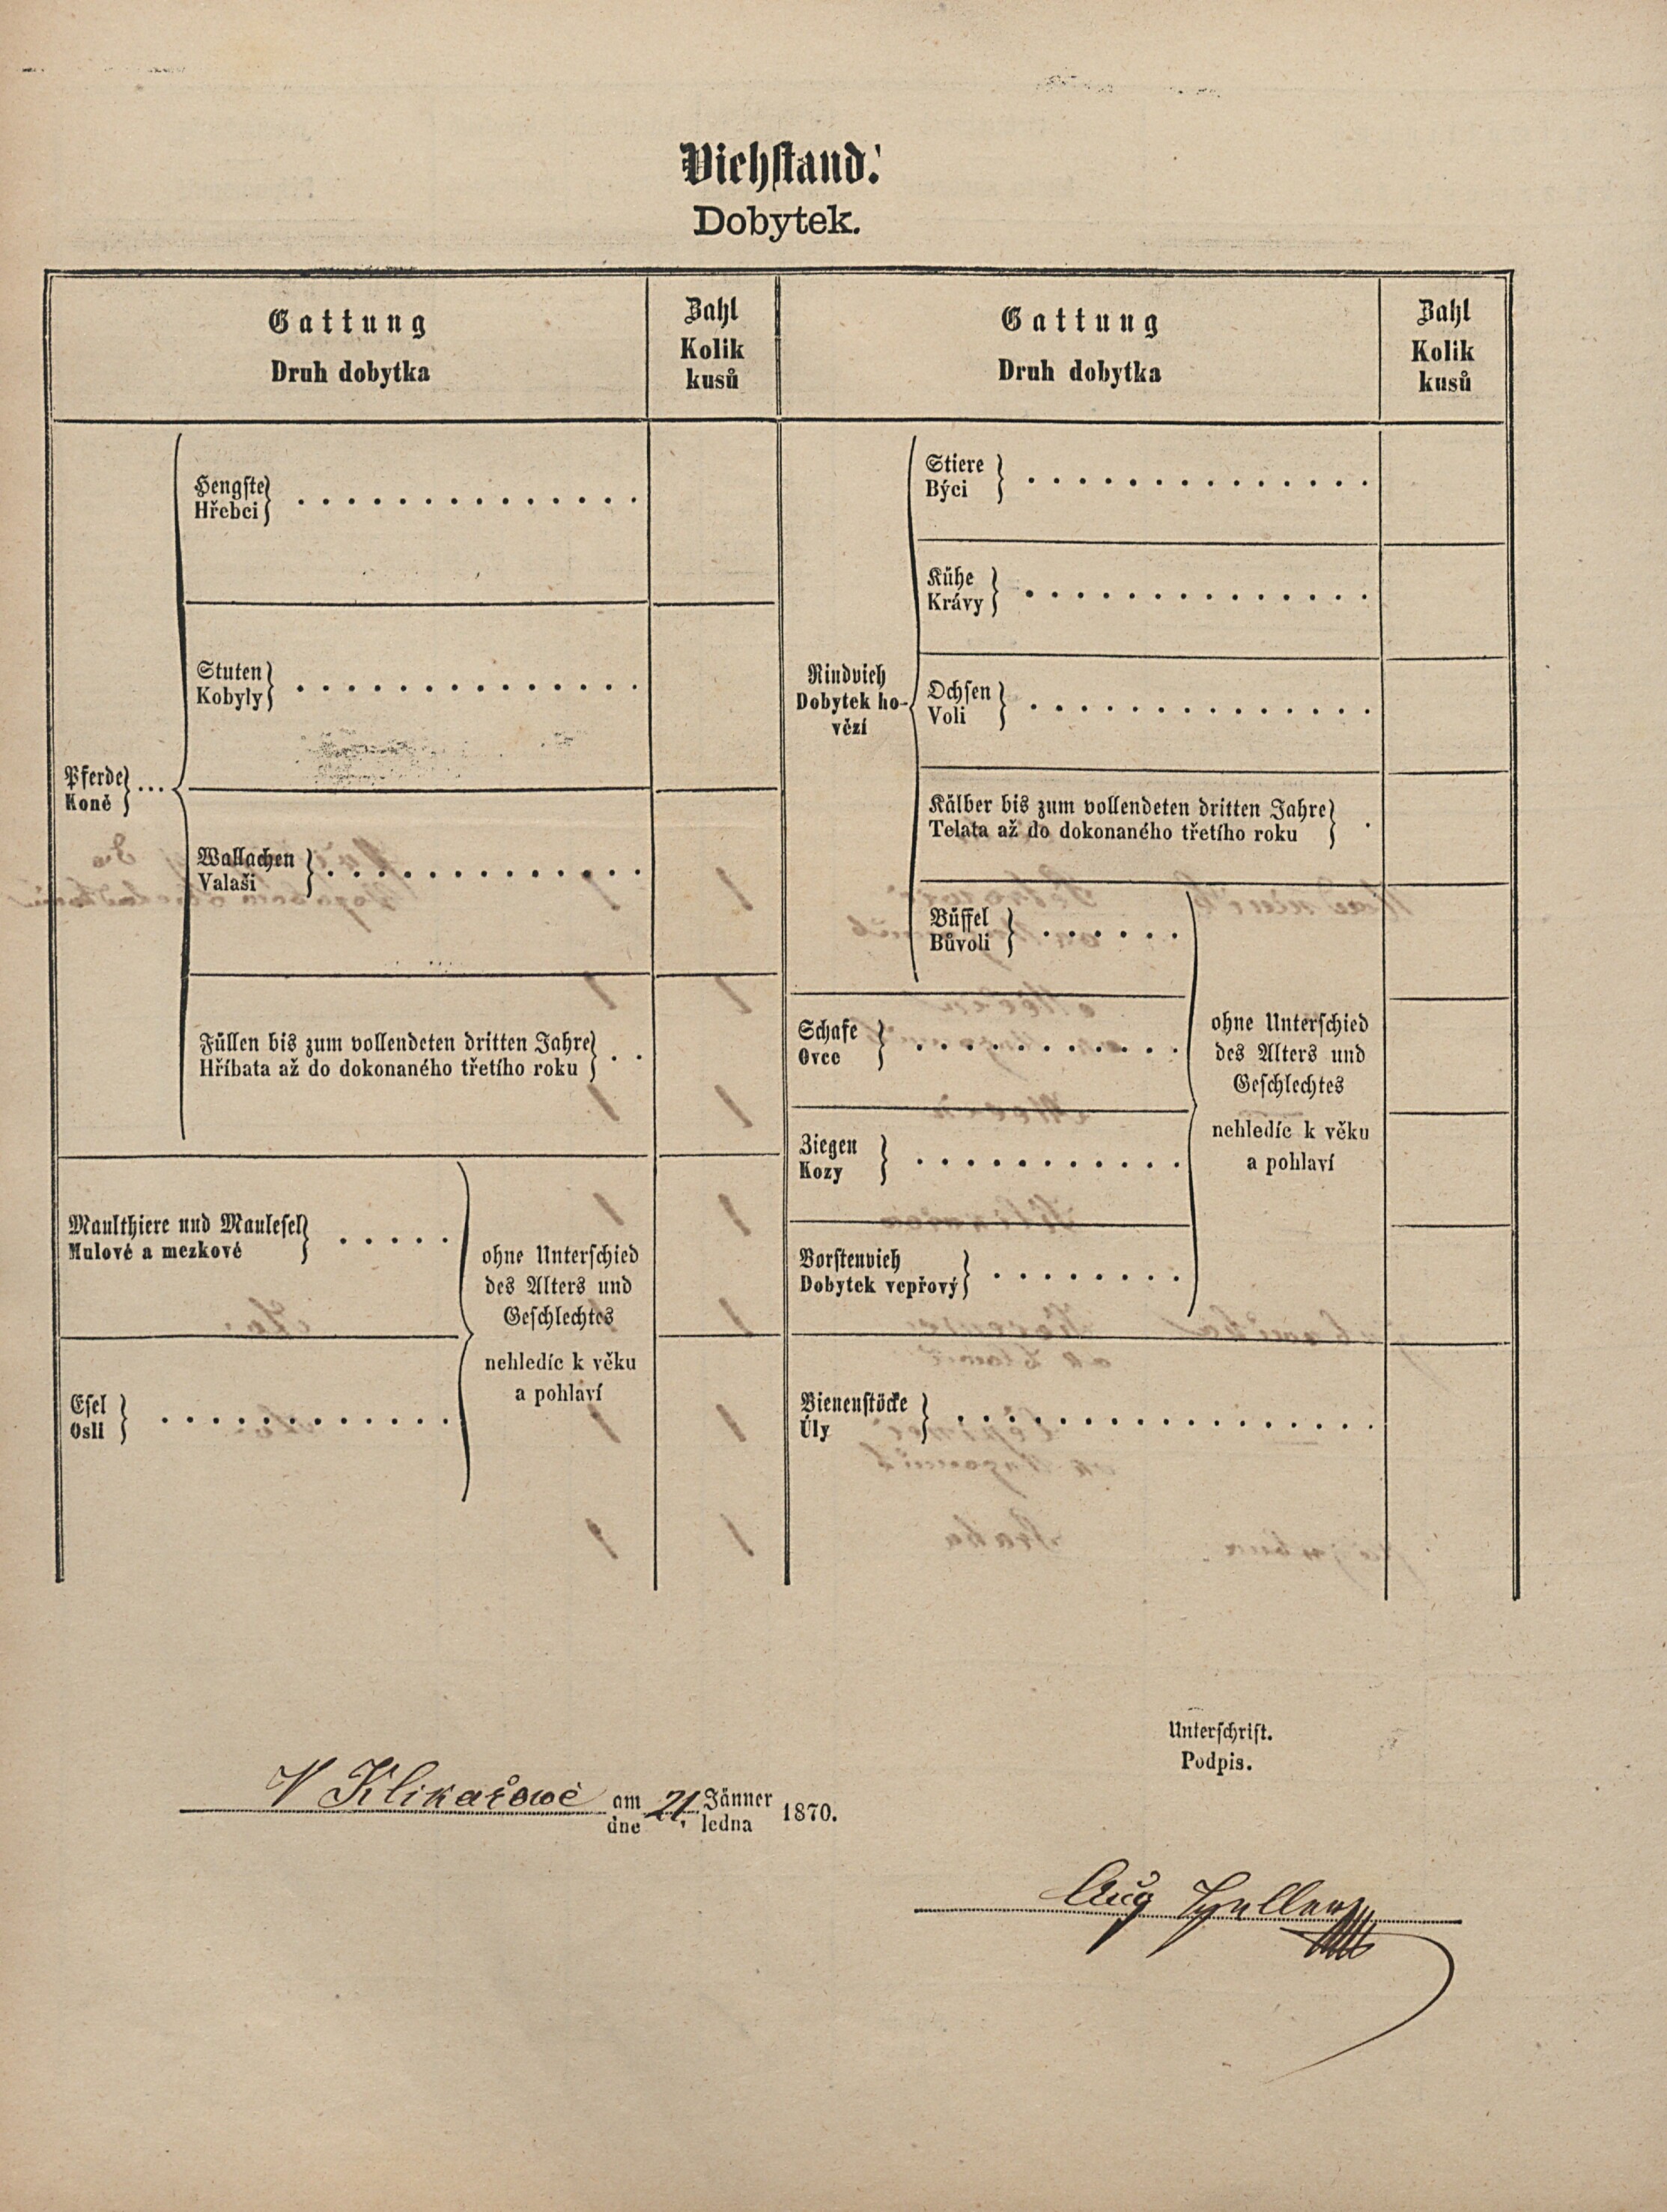 Viehstand.
Dobytek.
Gattung
Druh dobytka
Zahl
Kolik
kusů
Gattung
Druh dobytka
Zahl
Kolik
kusů
Pferde
Koně
Hengste
Hřebci
Stuten
Kobyly
Wallachen
Valaši
Füllen bis zum vollendeten dritten Jahre
Hříbata až do dokonaného třetího roku
Maulthiere und Maulesel
Mulové a mezkové
Esel
Osli
ohne Unterschied
des Alters und
Geschlechtes
nehledíc k věku
a pohlaví
Rindvieh
Dobytek ho-
vězí
Stiere
Býci
Kühe
Krávy
Ochsen
Voli
Kälber bis zum vollendeten dritten Jahre
Telata až do dokonaného třetího roku
Büffel
Bůvoli
Schafe
Ovce
Ziegen
Kozy
Borstenvieh
Dobytek vepřový
ohne Unterschied
des Alters und
Geschlechtes
nehledíc k věku
a pohlaví
Bienenstöcke
Úly
Unterschrift.
Podpis.
V Klikařowě am 21. Jänner 1870.
dne ledna
Aug Heller